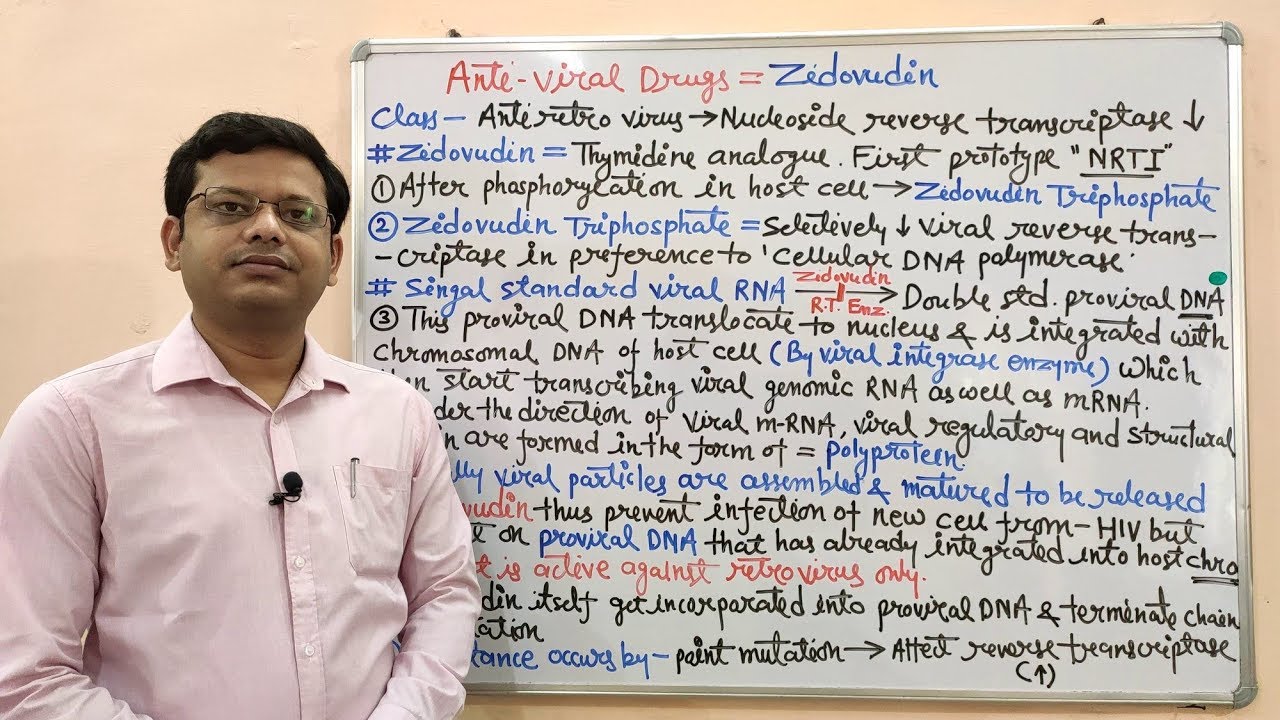 Anti-viral Drugs = Zidovudin
Class – Antiretro virus → Nucleoside reverse transcriptase ↓
# Zidovudin = Thymidine analogue. First prototype "NRTI"
① After phosphorylation in host cell → Zidovudin Triphosphate
② Zidovudin Triphosphate = Selectively ↓ viral reverse trans-
-criptase in preference to 'cellular DNA polymerase'
# Singal standard viral RNA Zidovudin R.T. Enz. → Double std. proviral DNA
③ This proviral DNA translocate to nucleus & is integrated with
chromosomal DNA of host cell (By viral integrase enzyme) which
start transcribing viral genomic RNA as well as mRNA.
the direction of viral m-RNA, viral regulatory and structural
are formed in the form of = polyprotein.
viral particles are assembled & matured to be released
thus prevent infection of new cell from – HIV but
on proviral DNA that has already integrated into host chro
is active against retrovirus only.
itself get incorparated into proviral DNA & terminate chain
occurs by – point mutation → Affect reverse transcriptase
(↑)